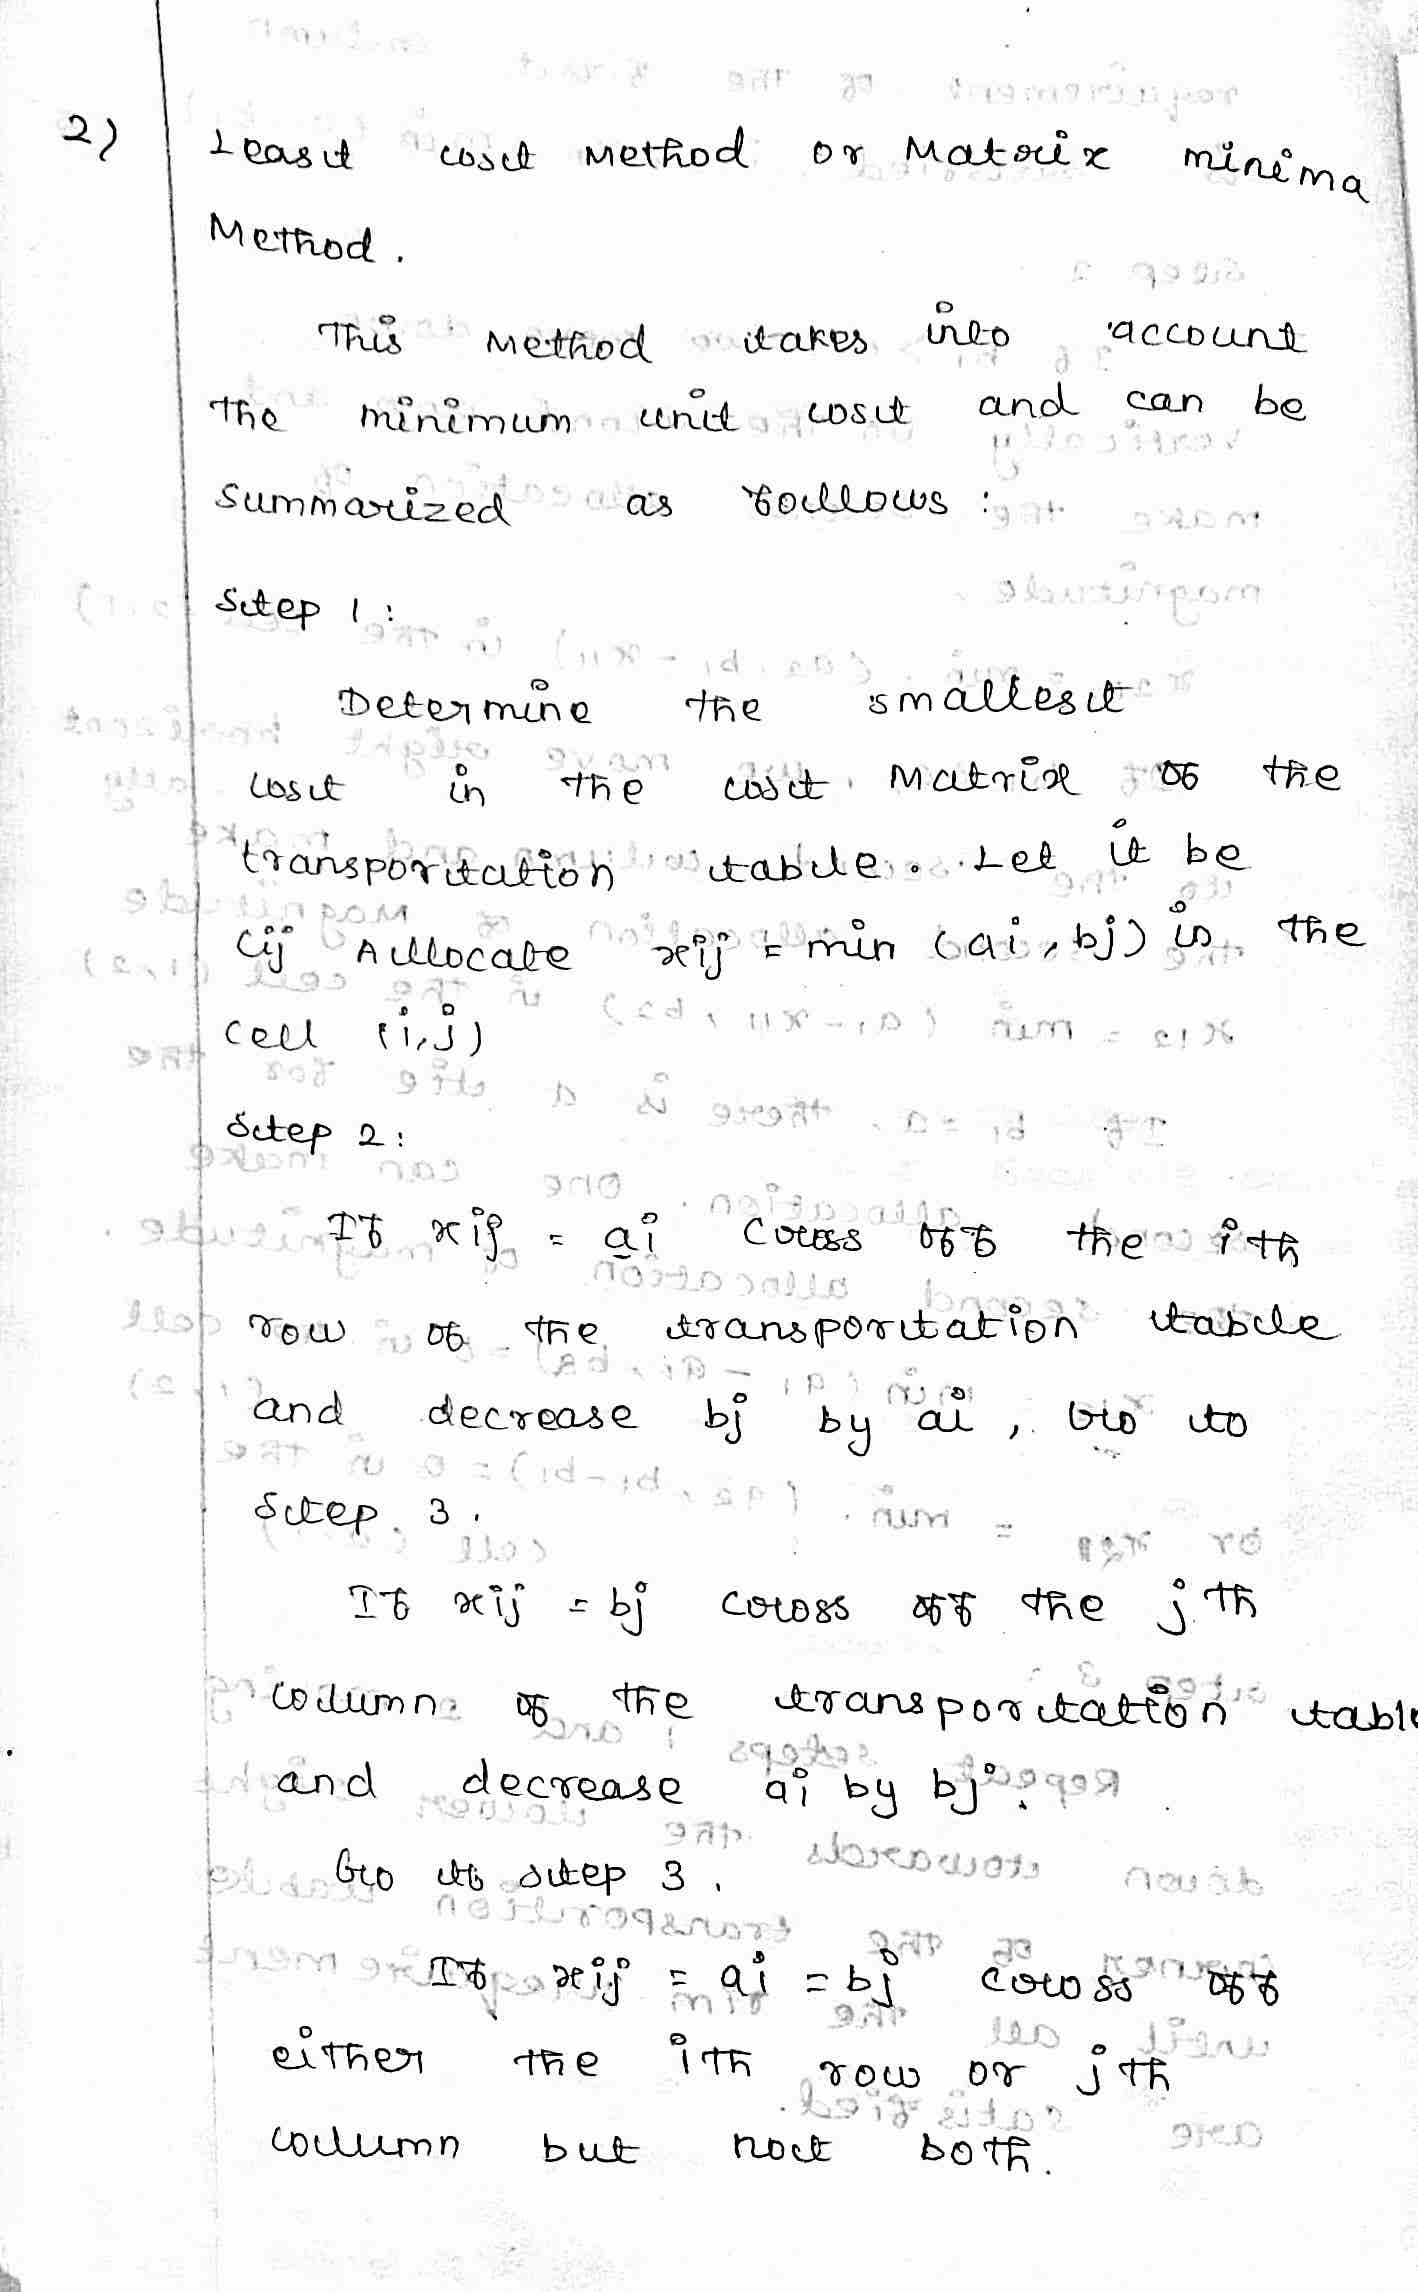 2) Least cost Method or Matrix minima
Method.
This Method takes into account
the minimum unit cost and can be
summarized as follows :
Step 1 :
Determine the smallest
cost in the cost Matrix of the
transportation table. Let it be
Cij Allocate xij = min (ai, bj) is the
cell (i,j)
Step 2 :
If xij = ai Cross off the ith
row of the transportation table
and decrease bj by ai, Go to
Step 3.
If xij = bj cross off the jth
column of the transportation table
and decrease ai by bj.
Go to step 3.
If xij = ai = bj cross off
either the ith row or jth
column but not both.